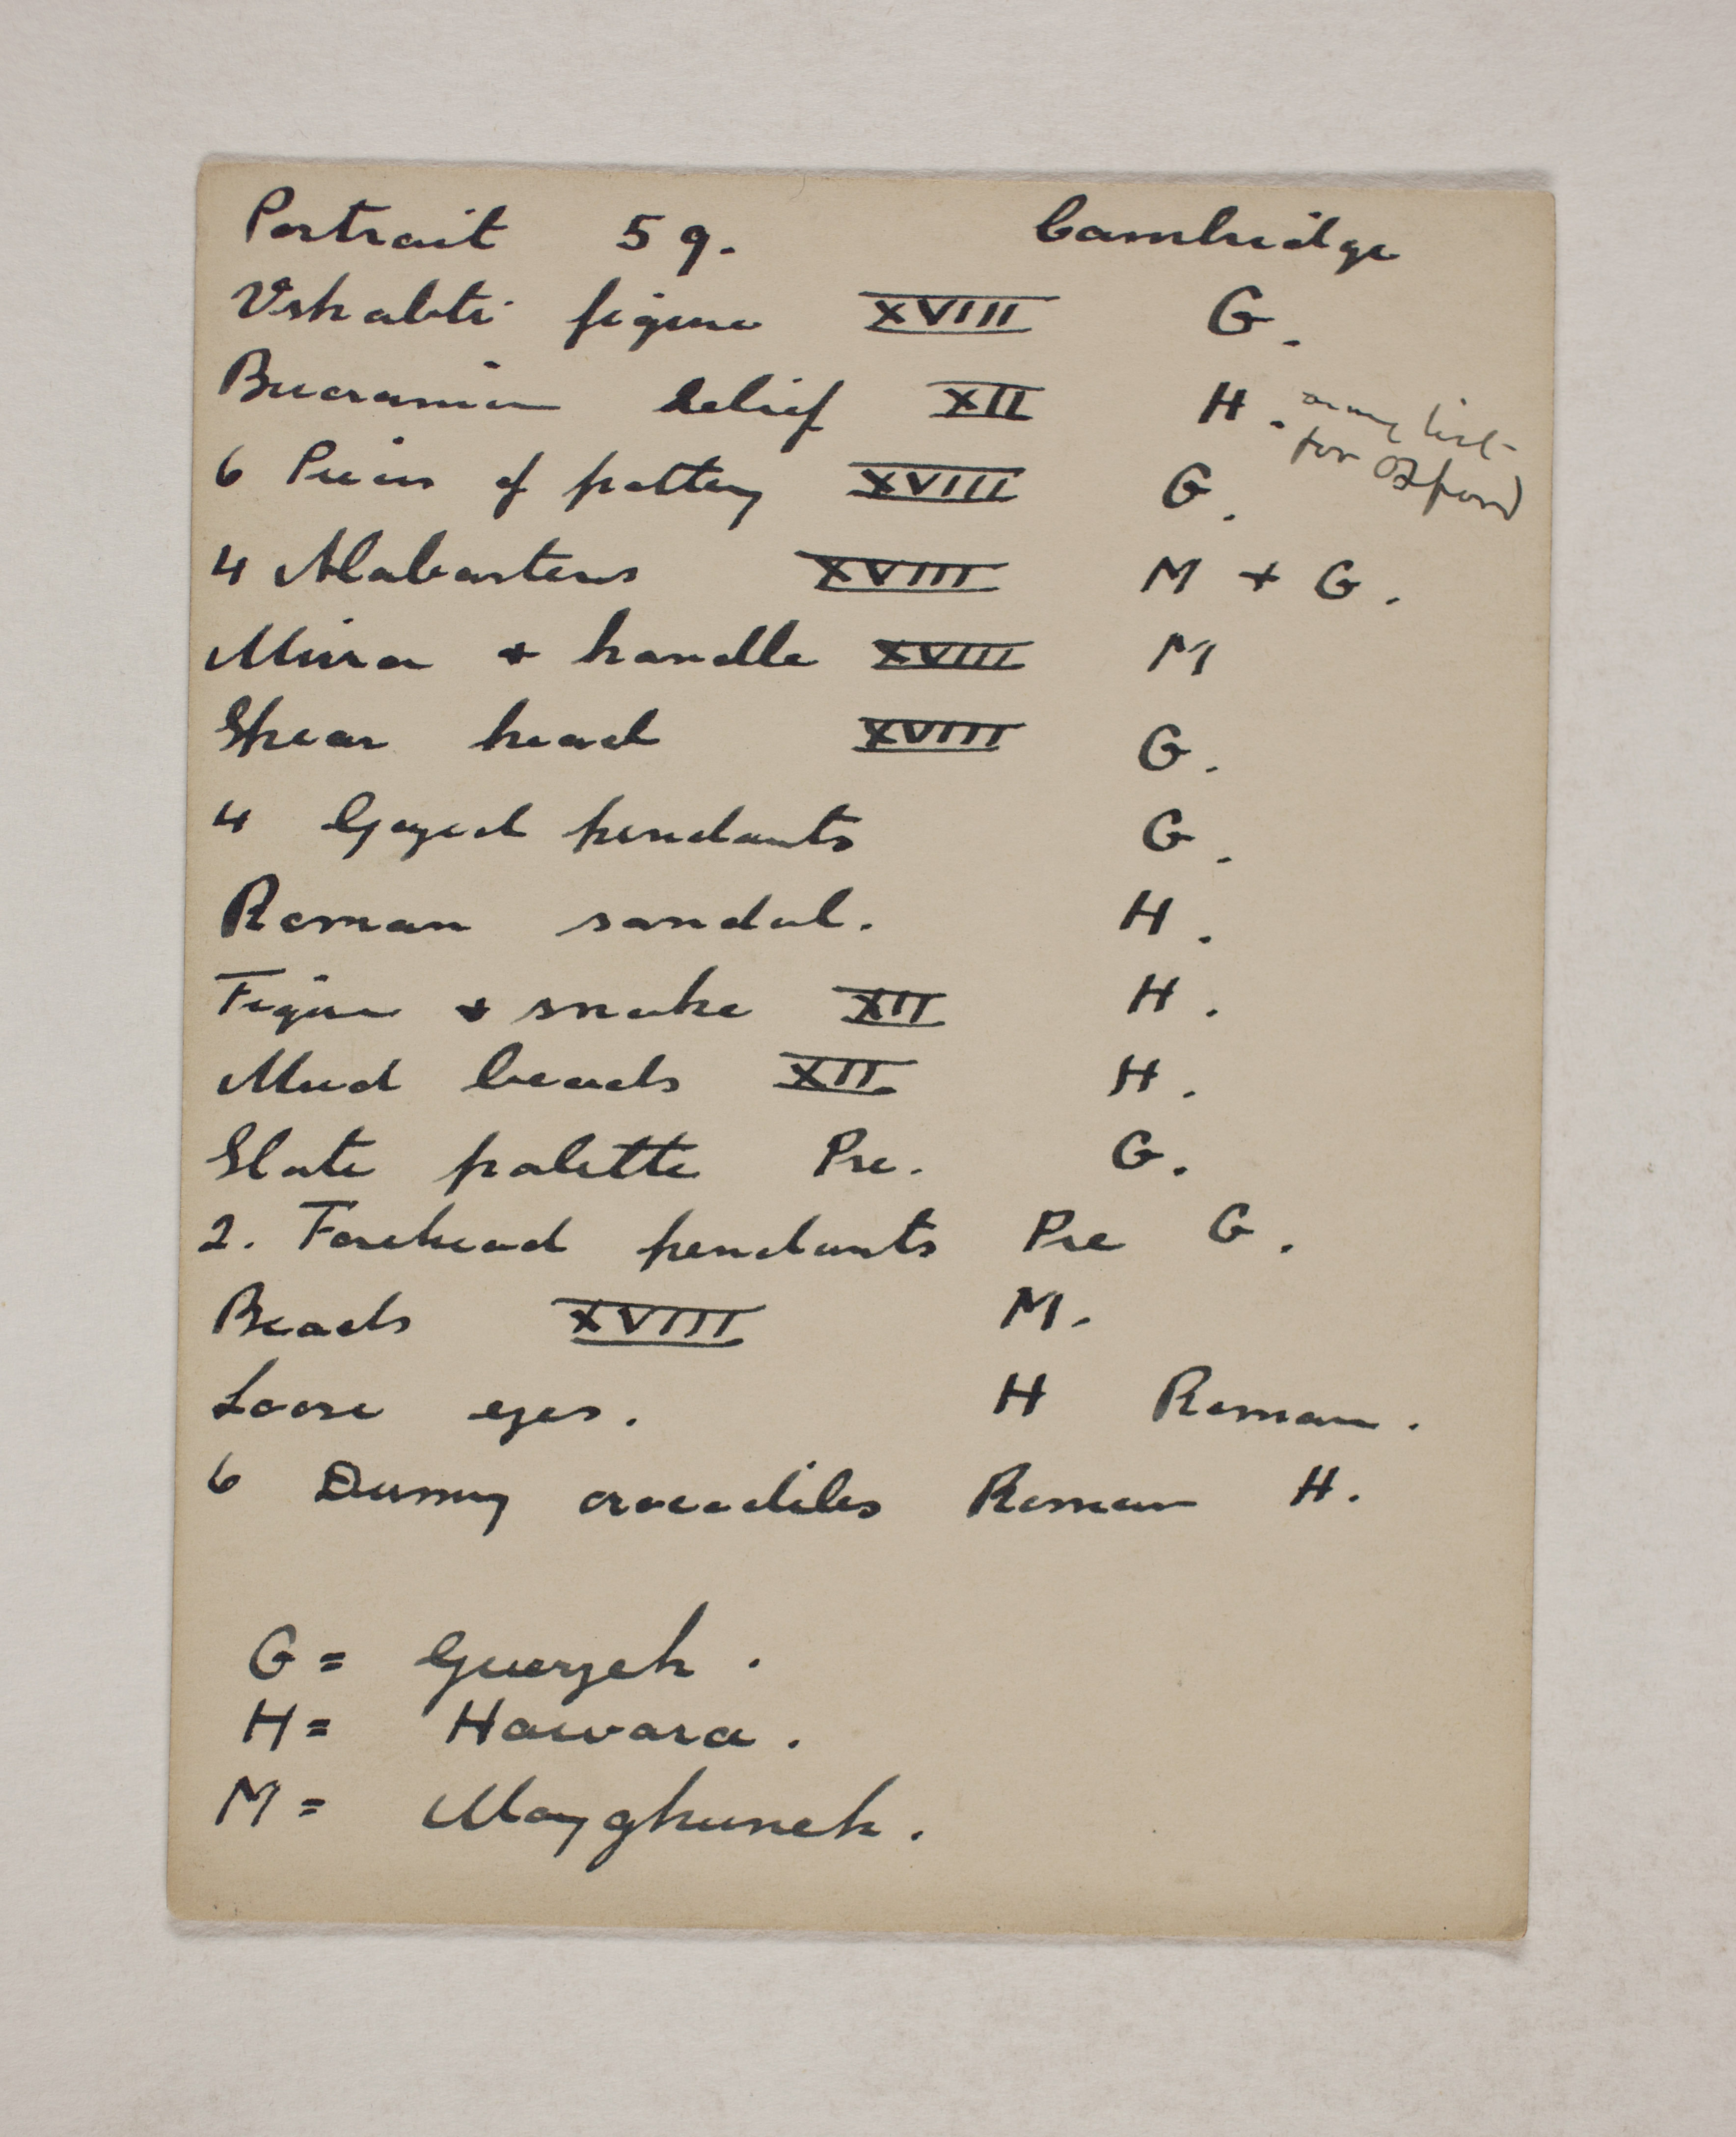 Portrait 59. Cambridge
Ushabti figure XVIII G.
Bucranium relief XII H. on my list
for Oxford
6 Pieces of pottery XVIII G.
4 Alabasters XVIII M + G.
Mirror + handle XVIII M
Spear head XVIII G.
4 Glazed pendants G.
Roman sandal. H.
Figure + snake XII H.
Mud beads XII. H.
Slate palette Pre. G.
2. Forehead pendants Pre G.
Beads XVIII M.
Loose eyes. H Roman.
6 Dummy crocodiles Roman H.
G = Guerzeh.
H = Hawara.
M = Mazghuneh.